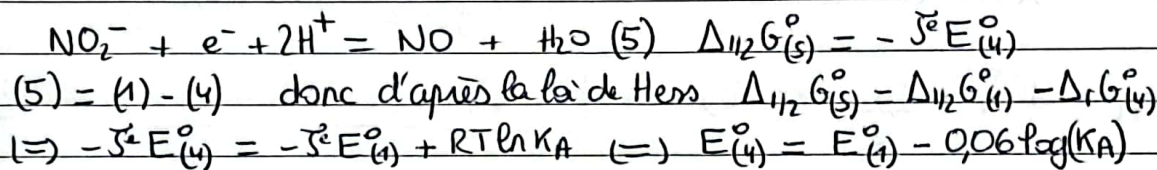 NO₂⁻ + e⁻ + 2H⁺ = NO + H₂O (5) Δ₁/₂G°₍₅₎ = - ℱE°₍₄₎
(5) = (1) - (4) donc d'après la loi de Hess Δ₁/₂G°₍₅₎ = Δ₁/₂G°₍₁₎ - ΔᵣG°₍₄₎
(=) -ℱE°₍₄₎ = -ℱE°₍₁₎ + RT ln K_A (=) E°₍₄₎ = E°₍₁₎ - 0,06 log(K_A)